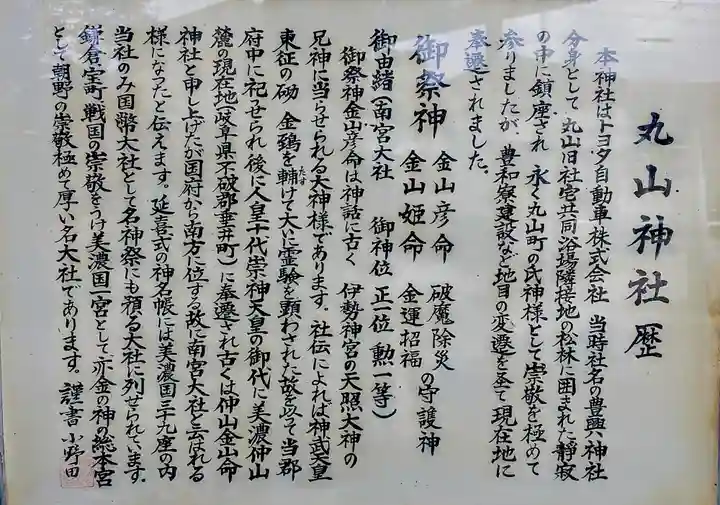 丸山神社歴
本神社はトヨタ自動車株式会社 当時社名の豊興神社
分身として 丸山旧社宅共同浴場隣接地の松林に囲まれた静寂
の中に鎮座され 永く丸山町の氏神様として崇敬を極めて
参りましたが、豊和寮建設など地目の変遷を圣て現在地に
奉遷されました。
御祭神 金山彦命 破魔除災
金山姫命 金運招福 の守護神
御由緒(南宮大社 御神位 正一位 勲一等)
御祭神金山彦命は神話に古く 伊勢神宮の天照大神の
兄神に当らせられる大神様であります。社伝によれば神武天皇
東征の砌 金鵄を輔けて大いに霊験を顕わされた故を以って当郡
たす
府中に祀つせられ 後に人皇十代崇神天皇の御代に美濃仲山
麓の現在地(岐阜県不破郡垂井町)に奉遷され古くは仲山金山命
神社と申し上げたが国府から南方に位する故に南宮大社と云はれる
様になったと伝えます。延喜式の神名帳には美濃国三十九座の内
当社のみ国幣大社として名神祭にも預る大社に列せられています。
鎌倉、室町、戦国の崇敬をうけ美濃国一宮として亦金の神の総本宮
として朝野の崇敬極めて厚い名大社であります。 謹書 小野田